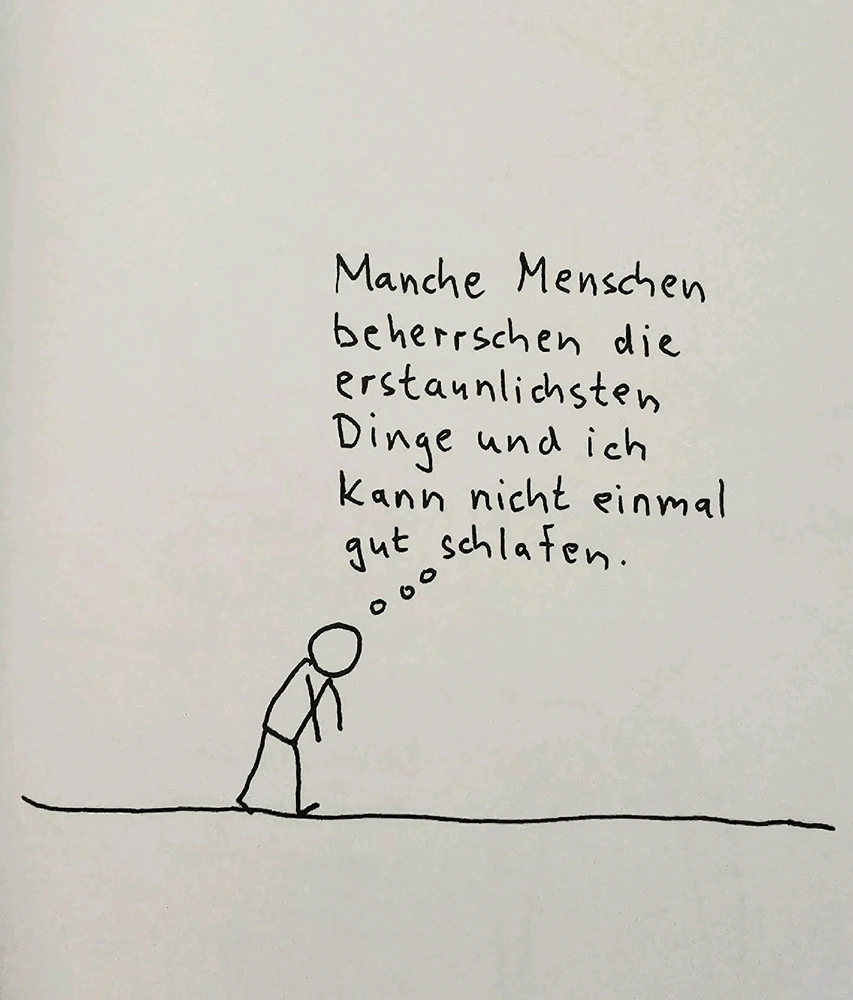 Manche Menschen
beherrschen die
erstaunlichsten
Dinge und ich
kann nicht einmal
gut schlafen.